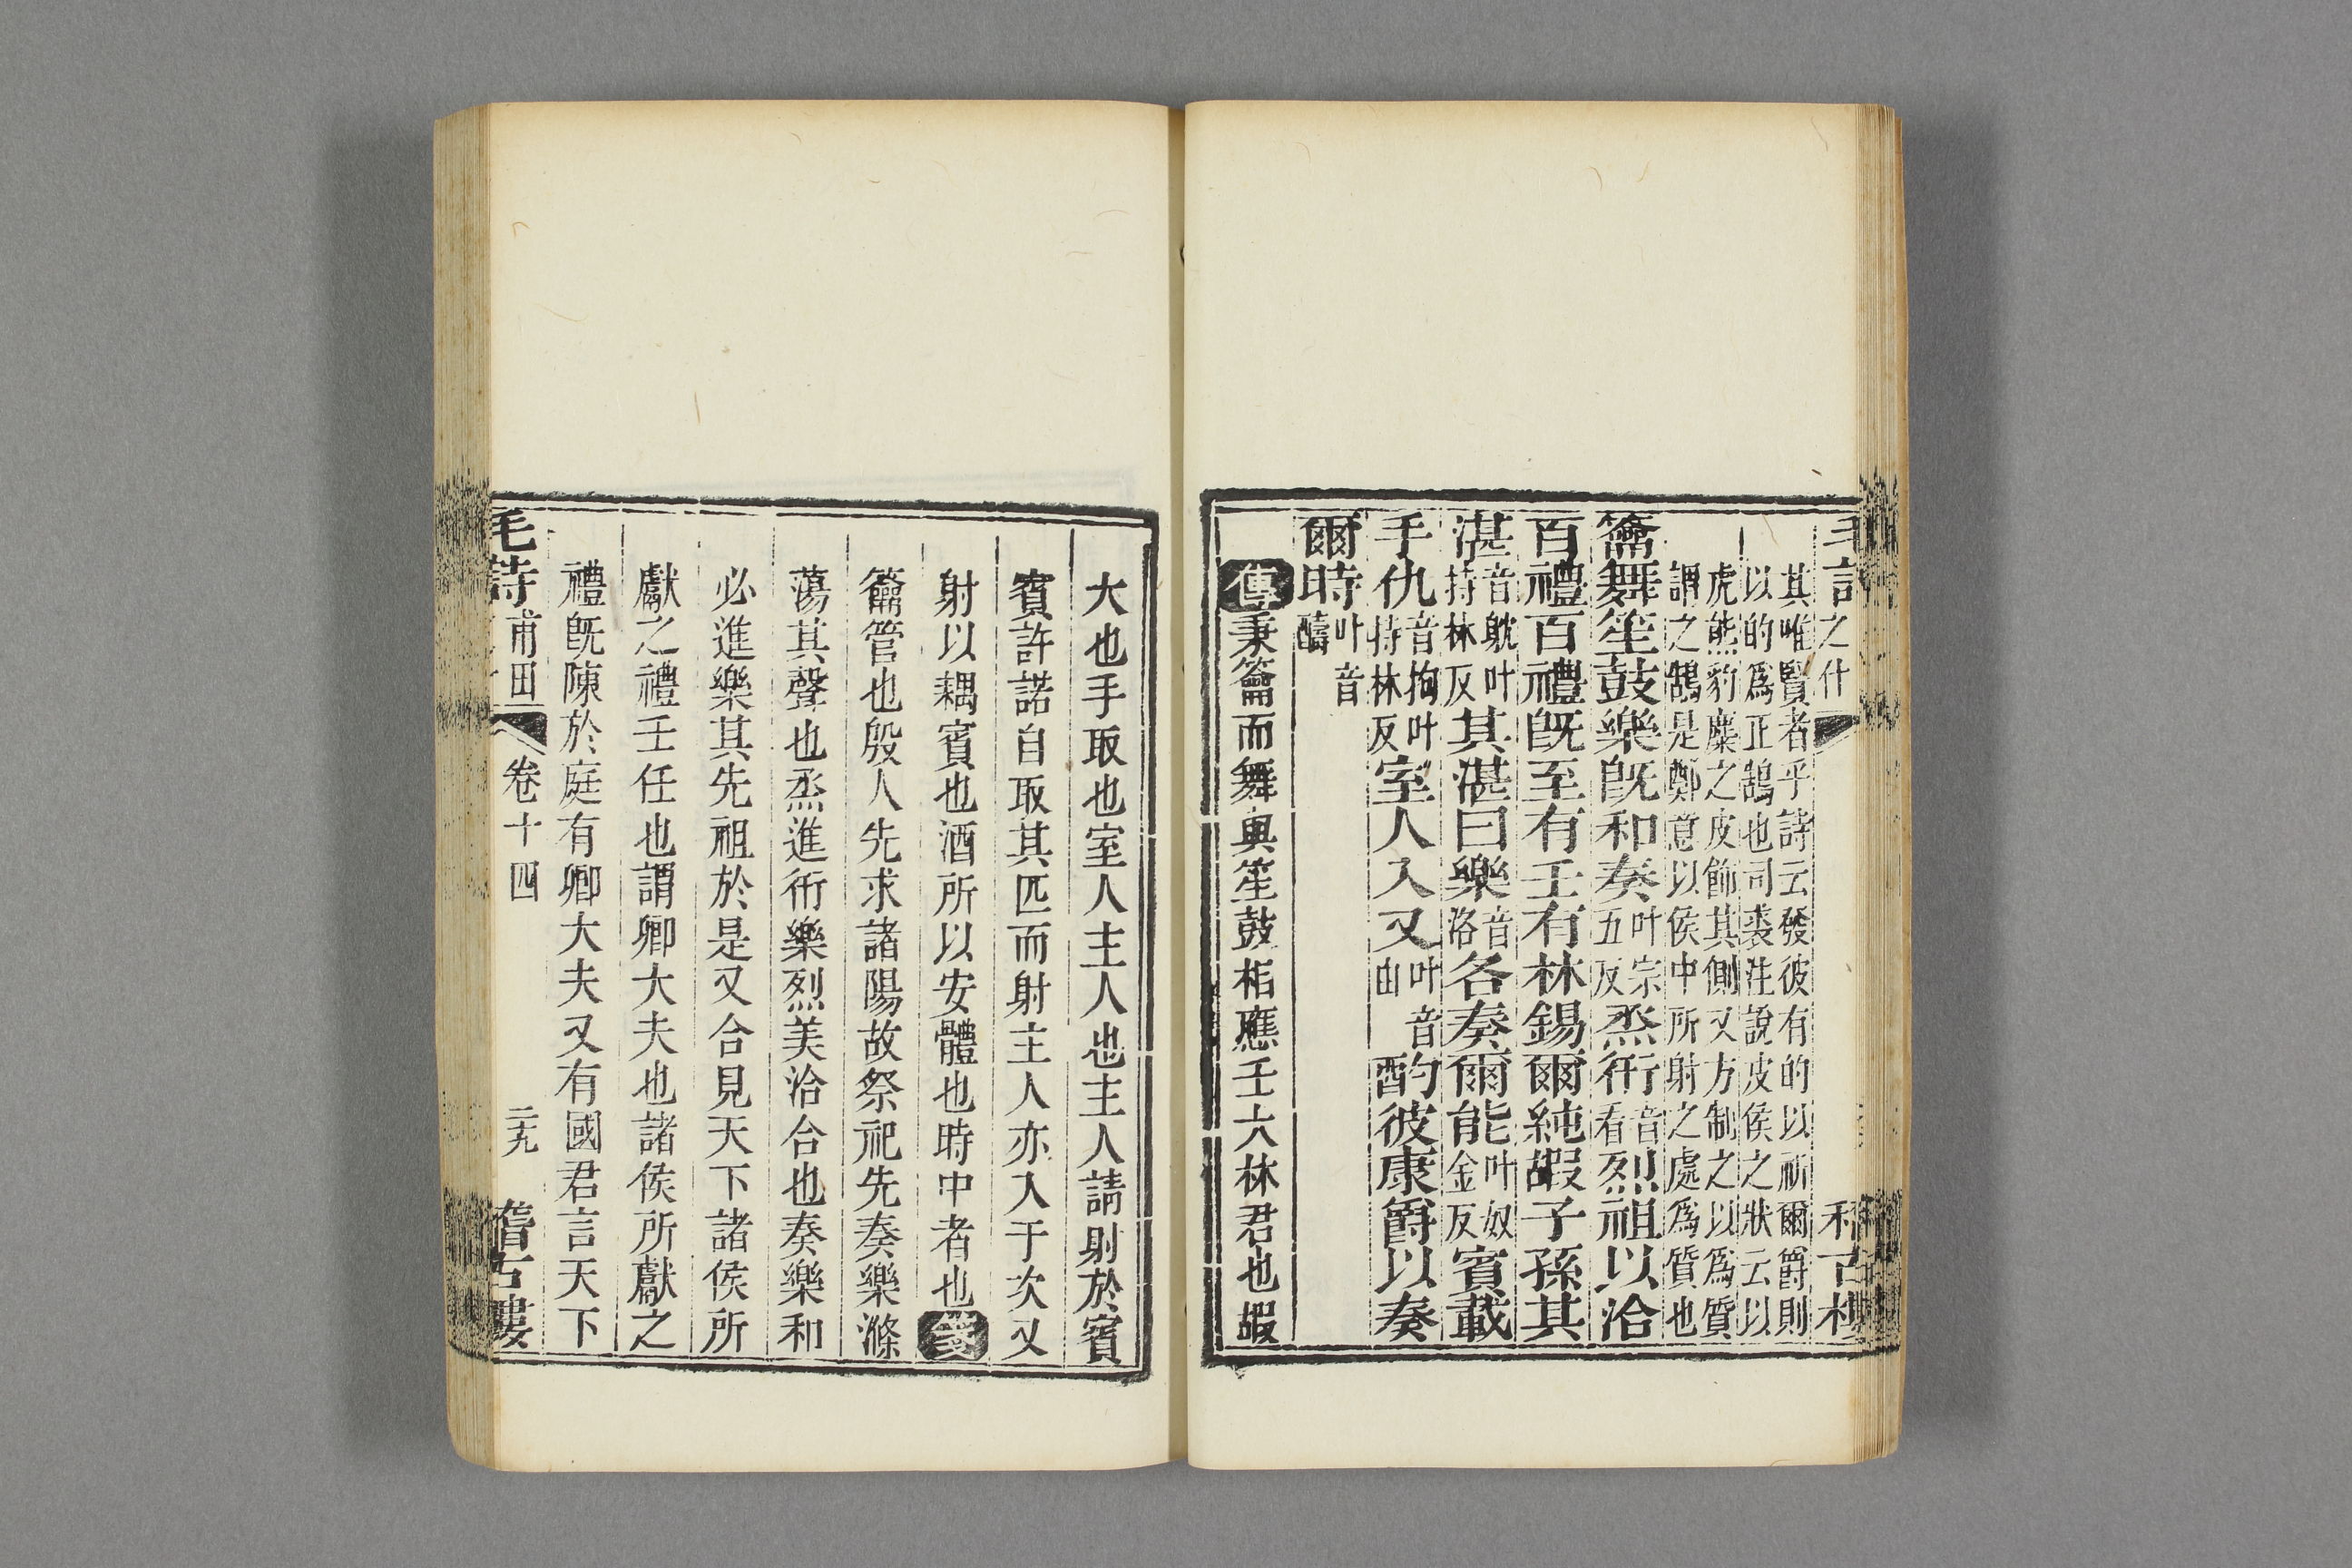 其唯賢者乎詩云發彼有的以祈爾爵則
以的爲正鵠也司裘注說皮侯之狀云以
虎熊豹麋之皮飾其側又方制之以爲質
謂之鵠是鄭意以侯中所射之處爲質也
籥舞笙鼓樂旣和奏叶宗五反烝衎音看烈祖以洽
百禮百禮旣至有壬有林錫爾純嘏子孫其
湛音躭叶持林反其湛曰樂音洛各奏爾能叶奴金反賓載
手仇音拘叶持林反室人入又叶音由酌彼康爵以奏
爾時叶音疇
傳秉籥而舞與笙鼓相應壬大林君也嘏
大也手取也室人主人也主人請射於賓
賓許諾自取其匹而射主人亦入于次又
射以耦賓也酒所以安體也時中者也箋
籥管也殷人先求諸陽故祭祀先奏樂滌
蕩其聲也烝進衎樂烈美洽合也奏樂和
必進樂其先祖於是又合見天下諸侯所
獻之禮壬任也謂卿大夫也諸侯所獻之
禮旣陳於庭有卿大夫又有國君言天下
毛詩甫田 卷十四 二九 稽古樓